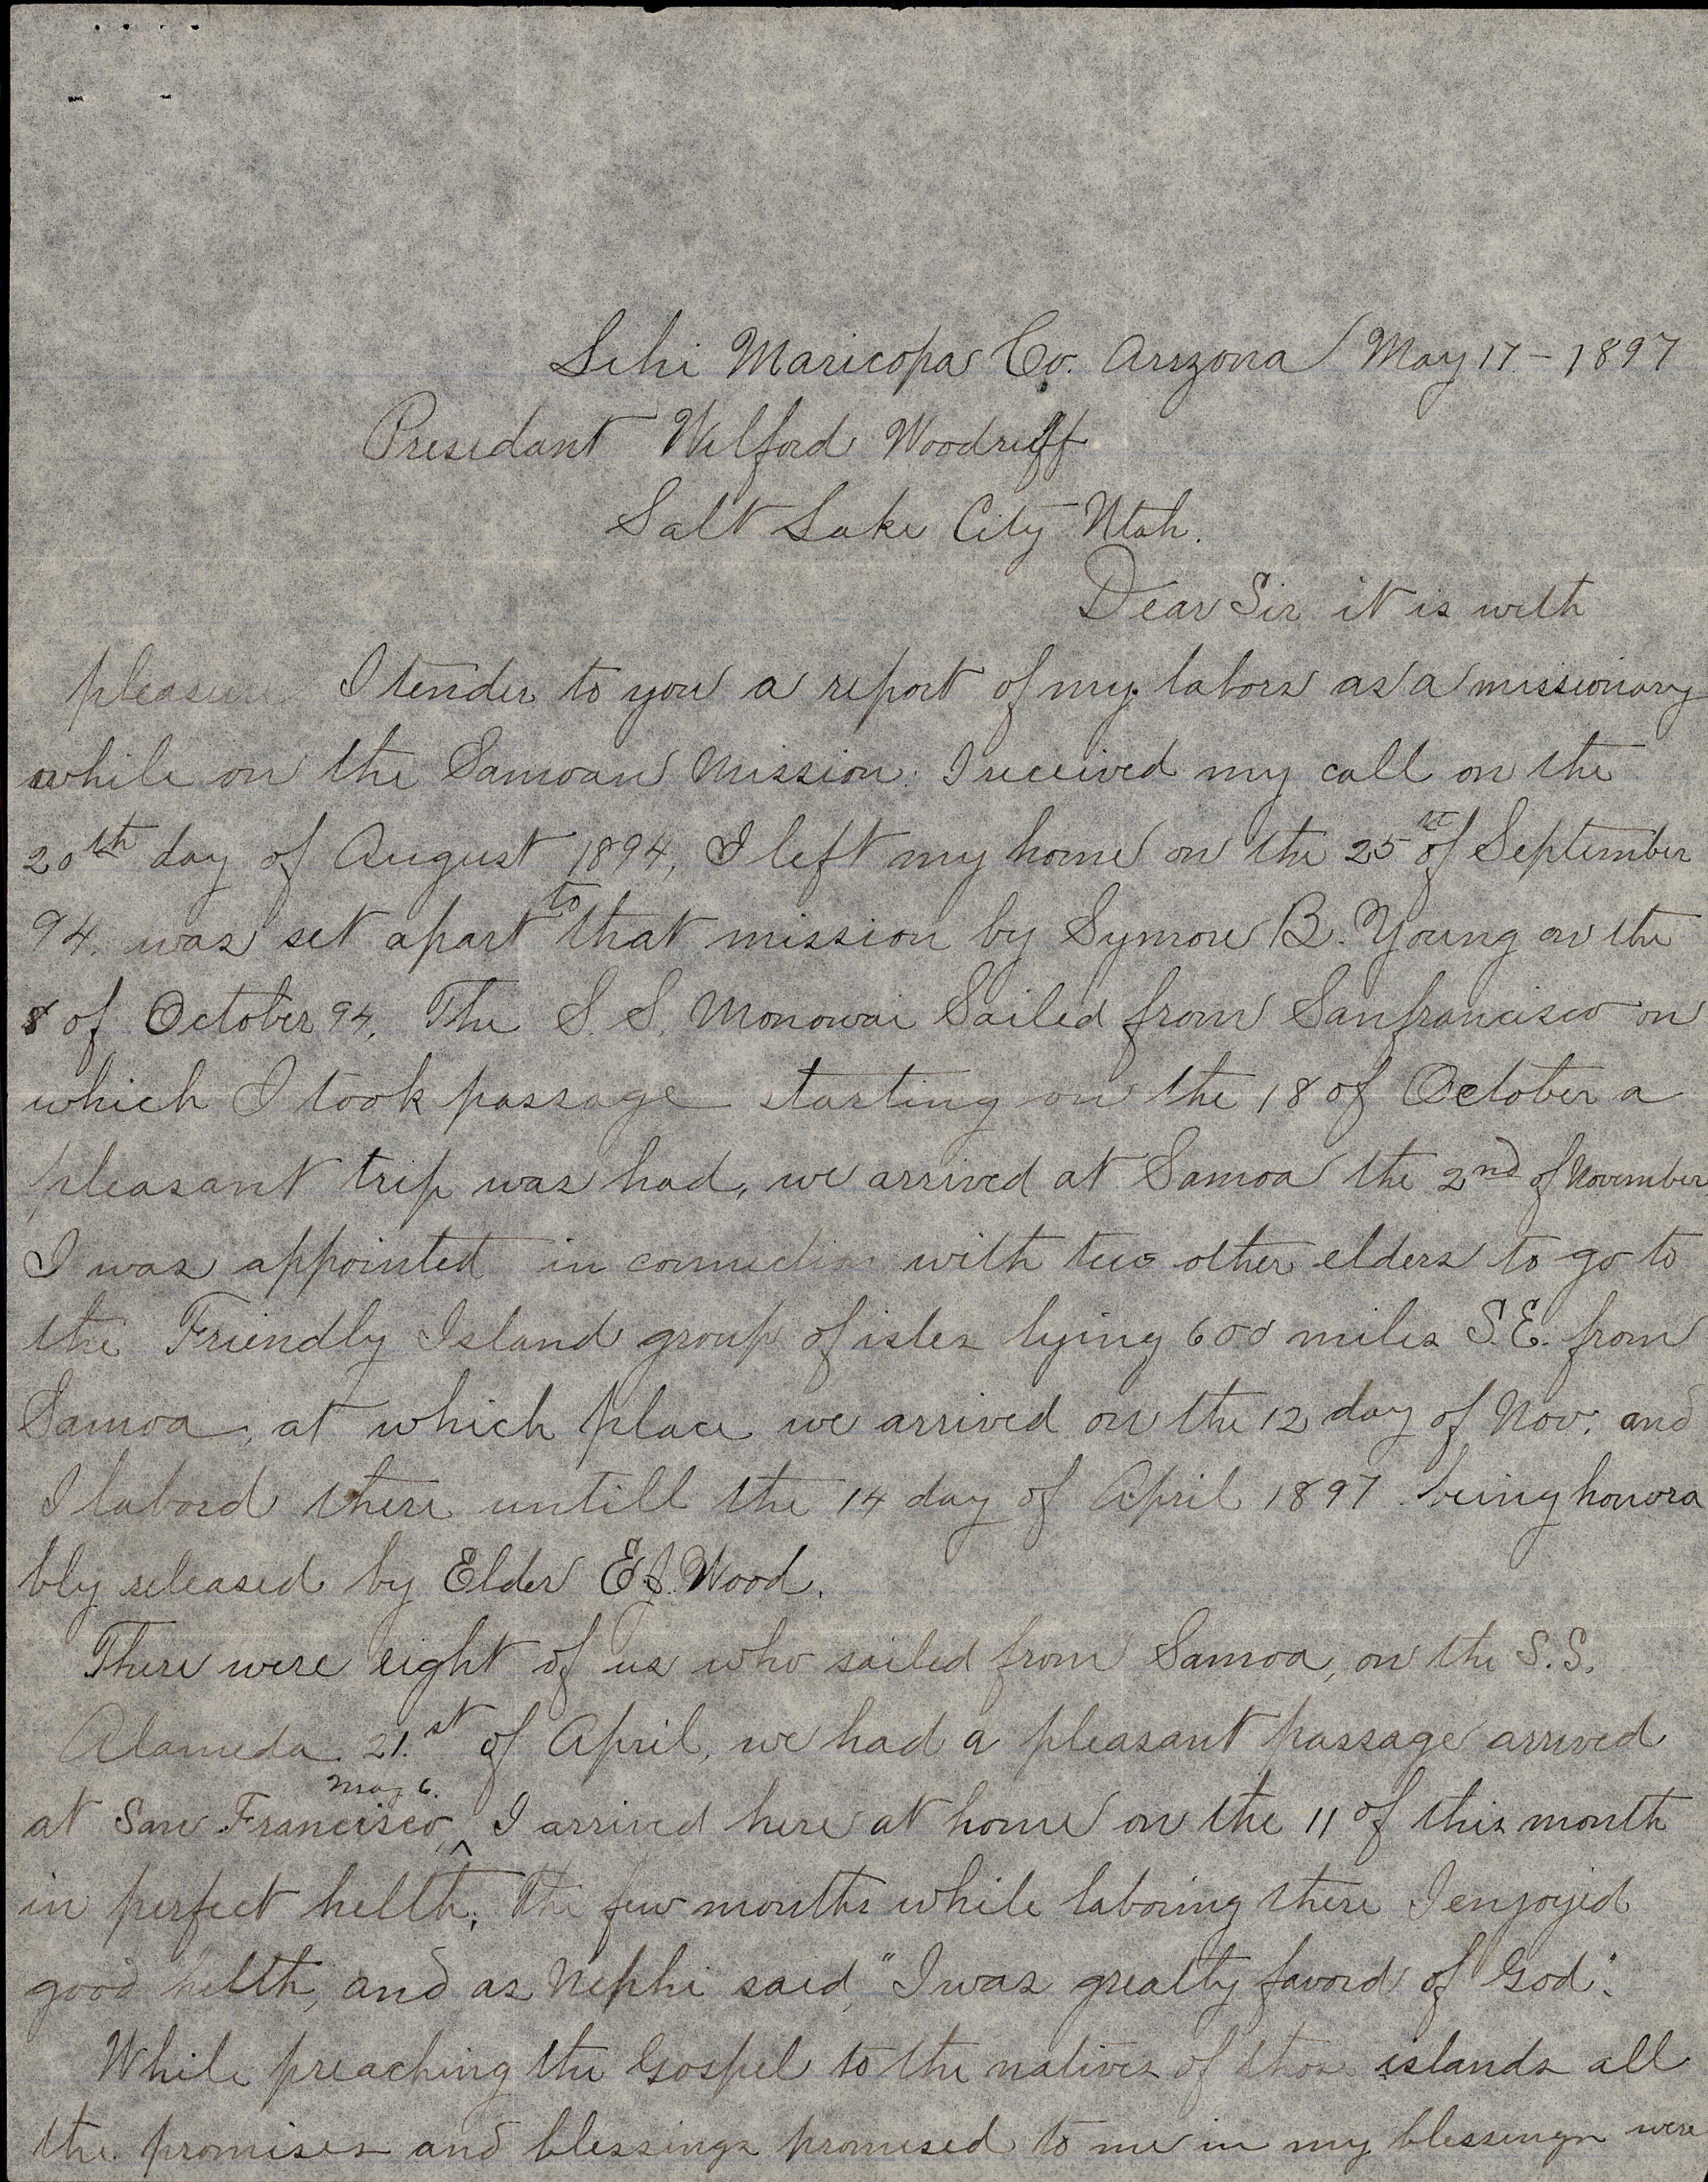 Lehi Maricopa Co. Arizona May 17 - 1897
Presedant Wilford Woodruff
Salt Lake City Utah.
Dear Sir it is with
pleasure I tender to you a report of my labors as a missionary
while on the Samoan Mission. I received my call on the
20th day of August 1894, I left my home on the 25th of September
94. was set apart to that mission by Symore B. Young on the
8 of October 94. The S. S. Monowai Sailed from Sanfrancisco on
which I took passage starting on the 18 of October a
pleasant trip was had, we arrived at Samoa the 2nd of November
I was appointed in connection with two other elders to go to
the Friendly Island group of isles lying 600 miles S.E. from
Samoa, at which place we arrived on the 12 day of Nov. and
I labord there untill the 14 day of April 1897. being honora
bly released by Elder E.J. Wood.
There were eight of us who sailed from Samoa, on the S.S.
Alameda 21.st of April, we had a pleasant passage arrived
at San Francisco, May 6. I arrived here at home on the 11 of this month
in perfect helth; the few months while laboring there I enjoyed
good helth, and as Nephi said, "I was grealty favord of God".
While preaching the Gospel to the natives of thos islands all
the promises and blessings promised to me in my blessings were